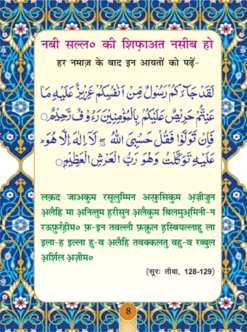 नबी सल्ल० की शिफ़ाअत नसीब हो
हर नमाज़ के बाद इन आयतों को पढ़ें-
لَقَدْ جَاءَكُمْ رَسُوْلٌ مِّنْ اَنْفُسِكُمْ عَزِيْزٌ عَلَيْهِ مَا
عَنِتُّمْ حَرِيْصٌ عَلَيْكُمْ بِالْمُؤْمِنِيْنَ رَءُوْفٌ رَّحِيْمٌ
فَاِنْ تَوَلَّوْا فَقُلْ حَسْبِيَ اللهُ لَآ اِلٰهَ اِلَّا هُوَ
عَلَيْهِ تَوَكَّلْتُ وَهُوَ رَبُّ الْعَرْشِ الْعَظِيْمِ
लक़द जाअकुम रसूलुम्मिन अन्फ़ुसिकुम अज़ीज़ुन
अलैहि मा अनित्तुम हरीसुन अलैकुम बिलमुअ्मिनी-न
रऊफ़ुर्रहीम० फ़-इन तवल्लौ फ़क़ुल हस्बियल्लाहु ला
इला-ह इल्ला हु-व अलैहि तवक्कलतु वहु-व रब्बुल
अर्शिल अज़ीम०
(सूर: तौबा, 128-129)
8